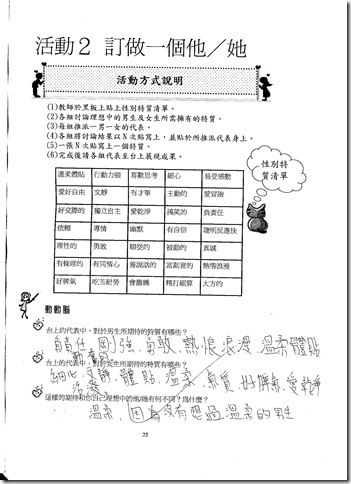 活動2 訂做一個他／她
活動方式說明
(1)教師於黑板上貼上性別特質清單。
(2)各組討論理想中的男生及女生所需擁有的特質。
(3)每組推派一男一女的代表。
(4)各組將討論結果以N次貼寫上，並貼於所推派代表身上。
(5)一張N次貼寫上一個特質。
(6)完成後請各組代表至台上展現成果。
性別特
質清單
溫柔體貼 行動力強 喜歡思考 細心 易受感動
愛好自由 文靜 有才華 主動的 愛冒險
好交際的 獨立自主 愛乾淨 搞笑的 負責任
依賴 專情 幽默 有自信 聰明反應快
理性的 勇敢 順從的 被動的 真誠
有條理的 有同情心 善說話的 富創意的 熱情浪漫
好脾氣 吃苦耐勞 會撒嬌 精打細算 大方的
動動腦
台上的代表中，對於男生所期待的特質有哪些？
負責任 剛強、勇敢、熱情浪漫、溫柔體貼
台上的代表中，對於女生所期待的特質有哪些？
細心、文靜、體貼、溫柔、氣質、好脾氣、愛乾淨
活潑
這樣的期待和你自己理想中的他/她有何不同？為什麼？
溫柔，因為沒有想過溫柔的男生
25